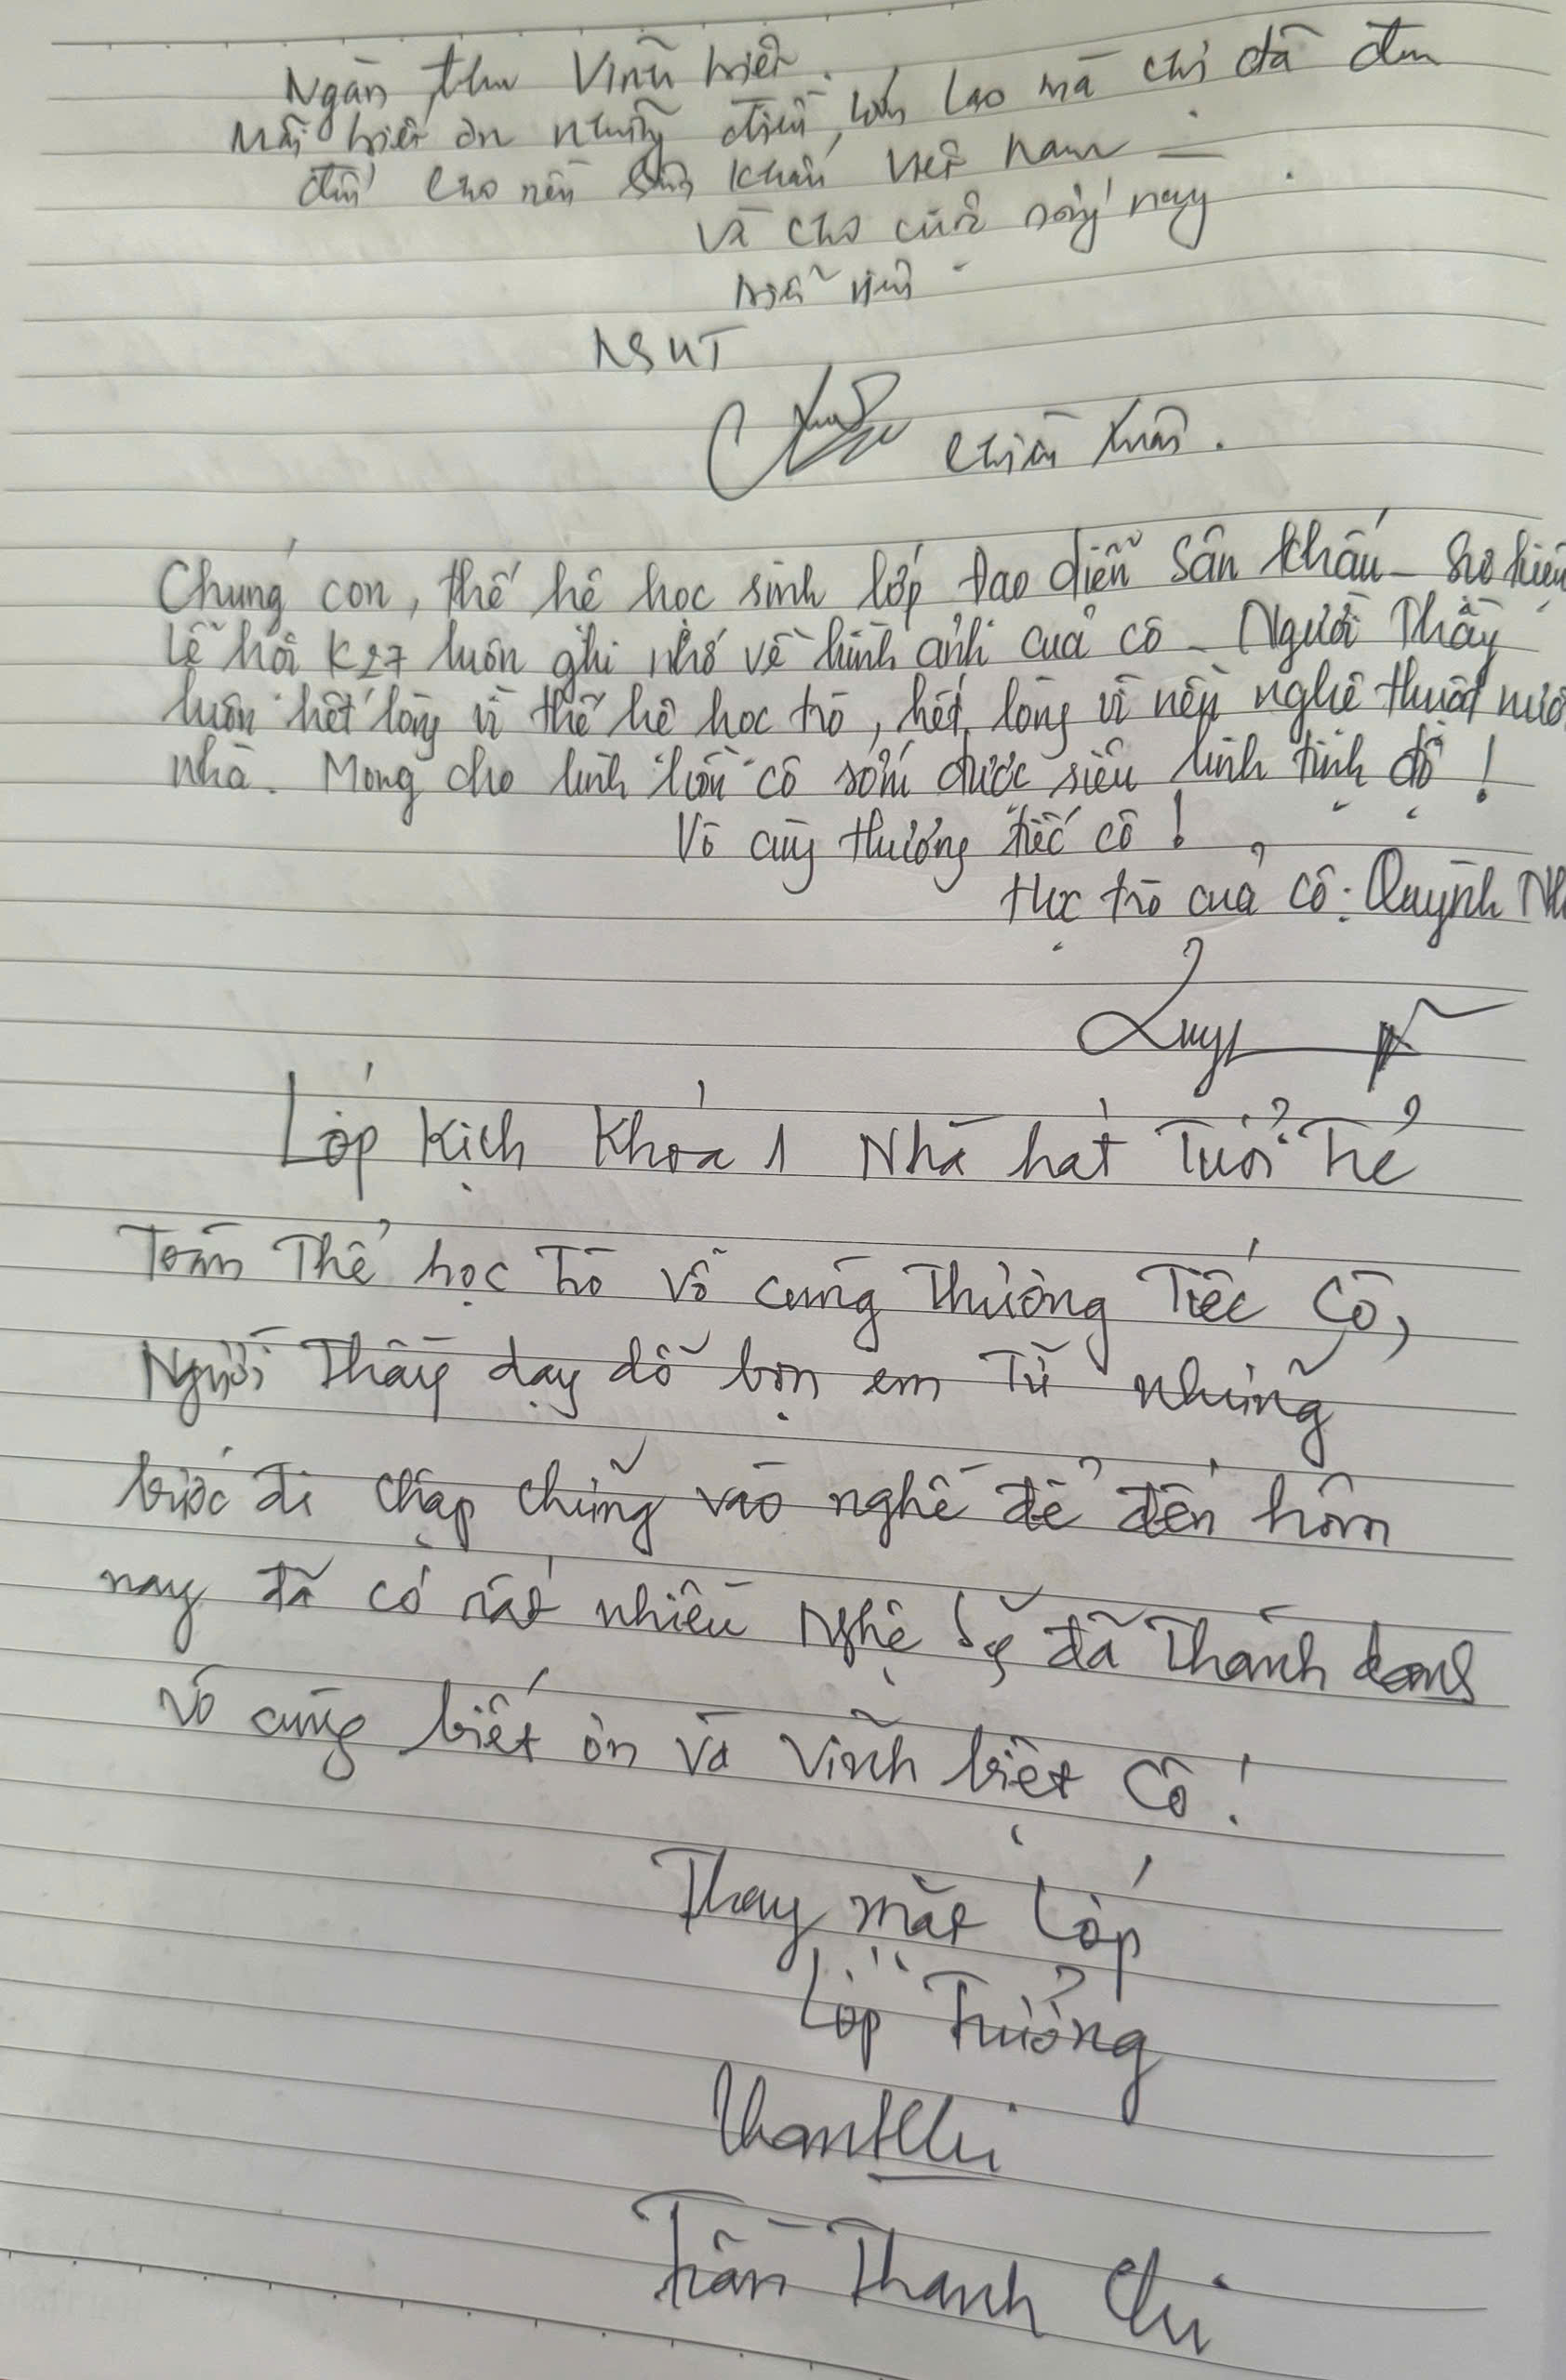 Ngàn thu Vĩnh biệt.
Mãi biết ơn những điều lớn lao mà chị đã đem
đến cho nền Sân khấu Việt Nam –
và cho cuộc sống này
NSUT
Chiều Xuân.
Chúng con, thế hệ học sinh lớp Đạo diễn Sân khấu – Sự kiện
Lễ hội K27 luôn ghi nhớ về hình ảnh của cô – Người Thầy
luôn hết lòng vì thế hệ học trò, hết lòng vì nền nghệ thuật nước
nhà. Mong cho linh hồn cô sớm được siêu linh tịnh độ!
Vô cùng thương tiếc cô!
Học trò của cô: Quỳnh
Lớp Kịch Khóa 1 Nhà hát Tuổi Trẻ
Toàn Thể học Trò vô cùng Thương Tiếc Cô,
Người Thầy dạy dỗ bọn em Từ những
bước đi chập chững vào nghề để đến hôm
nay đã có rất nhiều Nghệ Sỹ đã Thành danh
Vô cùng biết ơn và Vĩnh biệt Cô!
Thay mặt Lớp
Lớp Trưởng
Trần Thanh Chi